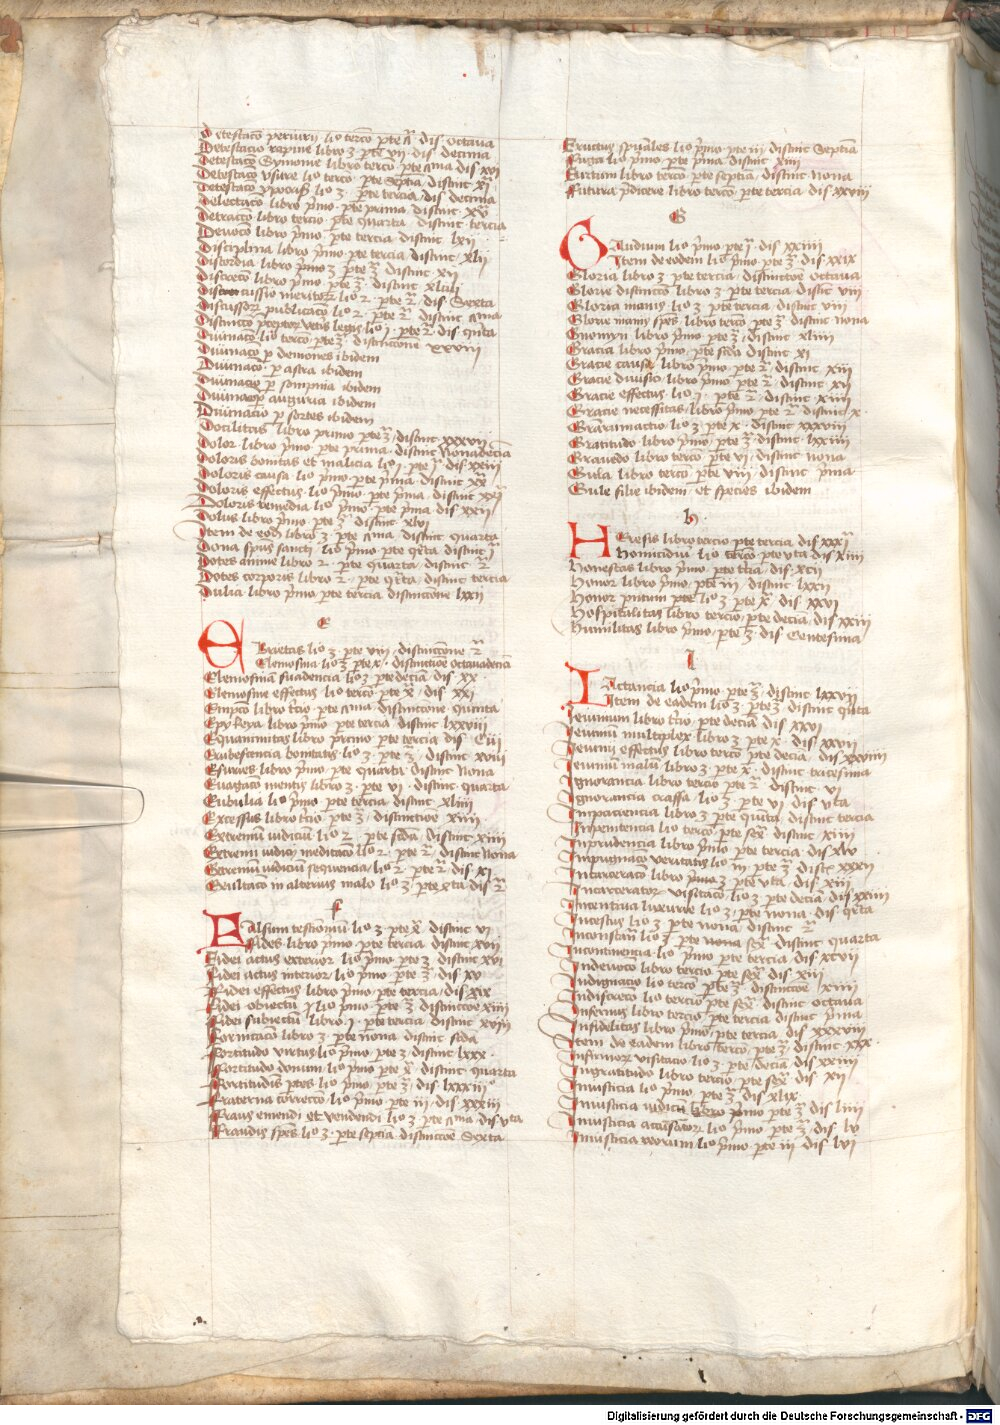 Detestaco periurii lio terco pte ij dis octava
Detestacio rapine libro 3 pte vii dis decima
Detestaco Symonie libro terco pte nona dis xvi
Detestaco usure lio terco pte septia distinc xi
Detestaco ypocrisis lio 3 pte tercia dis decima
Delectaco libro primo pte prima distinc xv
Detracco libro tercio pte quarta distinc tercia
Devoco libro primo pte tercia distinc lxii
Disciplina libro primo pte tercia distinc xlii
Discordia libro primo 3 pte 3 distinc xii
Discreco libro primo pte 3 distinc xliiii
Discussio meritor lio 2 pte 2 dis Sexta
Divinaco lio terco pte 3 distinccone xxviii
Divinaco p demones ibidem
Divinaco p astra ibidem
Divinacio p sompnia ibidem
Divinacio p auguria ibidem
Divinacio p sortes ibidem
Docilitas libro primo pte 3 distinc xxxvii
Dolor libro primo pte prima distinc Nonadecia
Doloris bonitas et malicia lio j pte j dis xxiiii
Doloris causa lio primo pte prima distinc xx
Doloris effectus lio primo pte prima distinc xxj
Doloris remedia lio primo pte prima dis xxii
Dolus libro primo pte 3 distinc xlvi
Item de eod libro 3 pte nona distinc quarta
Dona spus sancti lio primo pte qrta distinc j
Dotes anime libro 2 pte quarta distinc 2
Dotes corporis libro 2 pte qrta distinc tercia
Dulia libro primo pte tercia distinccone lxxii
E
Ebrietas lio 3 pte viii distinccone 2
Elemosina lio 3 pte x distinccoe octavadecia
Elemosina suadencia lio 3 pte decia dis xx
Elemosine effectus lio terco pte x dis xxi
Empco libro tcio pte nona distinccone quinta
Epykeya libro primo pte tercia distinc lxxviii
Equanimitas libro primo pte tercia dis Ciii
Erubescencia bonitatis lio 3 pte 3 distinc xviii
Esuries libro primo pte quarta distinc Nona
Evagaco mentis libro 3 pte vi distinc quarta
Eubulia lio primo pte tercia distinc xliiii
Excessus libro tcio pte 3 distinctioe xiiii
Extremu iudiciu lio 2 pte scda distinc xiiii
Extremi iudicii meditaco lio 2 pte 2 distinc Nona
Extremu iudiciu sequencia lio 2 pte 2 dis xi
Exultaco in alterius malo lio 3 pte xta dis 2
f
Falsum testioniu lio 3 pte x distinc vi
Fides libro primo pte tercia distinc xvii
Fidei actus exterior lio primo pte 3 distinc xvi
Fidei actus interior lio primo pte 3 dis xv
Fidei effectus libro primo pte tercia dis xix
Fidei obiectu j lio primo pte 3 distinccoe xiiii
Fidei subiectu libro j pte tercia distinc xviii
Fornicaco libro 3 pte nona distinc scda
Fortitudo virtus lio primo pte 3 distinc lxxx
Fortitudo donum lio primo pte x distinc quarta
Fortitudis ptes lio primo pte 3 dis lxxxiii
Fraterna correcco lio primo pte iii dis xxxiii
Fraus emendi et vendendi lio 3 pte nona dis vta
Fraudis spes lio 3 pte septia distinccoe Sexta
Fructus spuales lio primo pte iii distinc Septia
Fuga lio primo pte prima distinc xiii
Furtum libro terco pte septia distinc nona
Futura pdicere libro terco pte tercia dis xxviii
G
Gaudium lio primo pte j dis xxiiii
Item de eodem lio primo pte 3 dis xxix
Gloria libro 3 pte tercia distinctoe octava
Glorie distinctio libro 3 pte tercia distinc viii
Gloria inanis lio 3 pte tercia distinc vii
Glorie inanis spes libro terco pte 3 distinc nona
Gnomyn libro primo pte 3 distinc xliiii
Gracia libro primo pte scda distinc xi
Gracie causa libro primo pte 2 distinc xiii
Gracie divisio libro primo pte 2 distinc xii
Gracie effectus lio j pte 2 distinc xiiii
Gracie necessitas libro primo pte 2 distinc x
Graciarumactio lio 3 pte x distinc xxxviii
Gratitudo libro primo pte 3 distinc lxxiiii
Gravedo libro terco pte vi distinc nona
Gula libro terco pte viii distinc prima
Gule filie ibidem et species ibidem
h
Heresis libro tercio pte tercia dis xxxi
Homicidiu lio terco pte vta dis xiiii
Honestas libro primo pte tercia dis xcii
Honor libro primo pte iii distinc lxxii
Honor pntum pte lio 3 pte x dis xxvi
Hospitalitas libro tercio pte decia dis xxiii
Humilitas libro primo pte 3 dis Centesima
I
Iactancia lio primo pte 3 distinc lxxvii
Item de eadem lio 3 pte 3 distinc qnta
Ieiunium libro tcio pte decia dis xxvi
Ieiuniu multiplex libro 3 pte x dis xxvii
Ieiunii effectus libro terco pte decia dis xxviiii
Ieiuniu malu libro 3 pte x distinc tricesima
Ignorancia libro tercio pte 2 distinc vi
Ignorancia crassa lio 3 pte vi dis vta
Impaciencia libro 3 pte quita distinc tercia
Inpenitencia lio terco pte sex distinc xiiii
Inprudencia libro primo pte tercia dis xlv
Inpugnaco veritatis lio iii pte 3 distc xxxii
Incarceraco libro primo 3 pte vta dis xiii
Incarcerator visitaco lio 3 pte decia dis xxiiii
Incentiva luxurie lio 3 pte nona dis qrta
Incestus lio 3 pte nona distinc 2
Inconstan lio 3 pte nona sex distinc quarta
Incontinencia lio primo pte tercia dis xcvii
Indevoco libro tercio pte sex dis xiii
Indignacio lio terco pte 3 distinccoe xiiii
Indiscreco lio tercio pte sex distinc octava
Infernus libro tercio pte tercia distinc prima
Infidelitas libro primo pte tercia dis xxxviii
Item de eadem libro terco pte 3 distinc xxx
Infirmor visitacio lio 3 pte decia dis xxiiii
Ingratitudo libro tercio pte sex dis xii
Iniusticia lio primo pte 3 dis xlix
Iniusticia iudicu libro primo pte 3 dis liiii
Iniusticia accusator lio primo pte 3 dis lv
Iniusticia reorum lio primo pte iii dis lvi
Digitalisierung gefördert durch die Deutsche Forschungsgemeinschaft - DFG